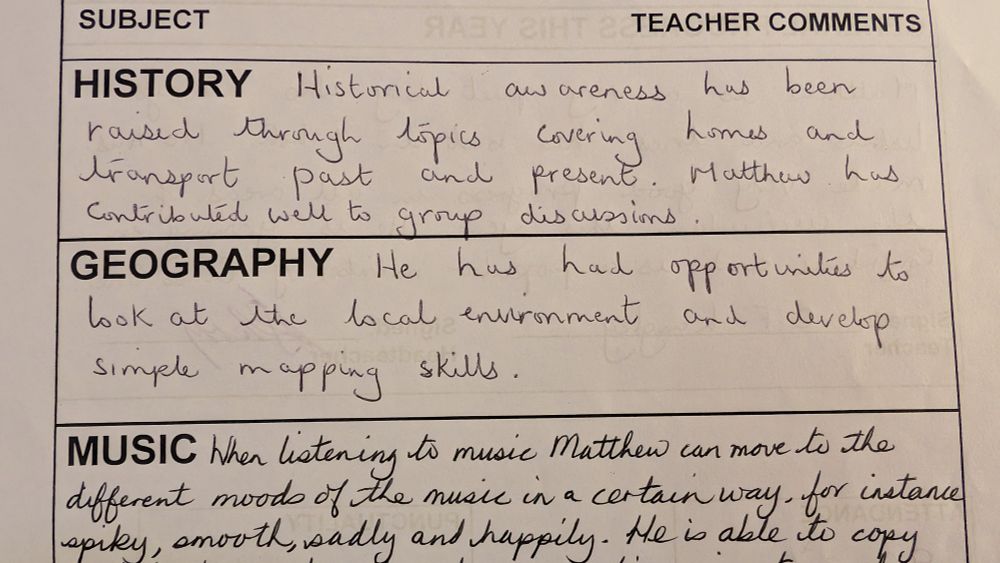 SUBJECT TEACHER COMMENTS
HISTORY Historical awareness has been
raised through topics covering homes and
transport past and present. Matthew has
contributed well to group discussions.
GEOGRAPHY He has had opportunities to
look at the local environment and develop
simple mapping skills.
MUSIC When listening to music Matthew can move to the
different moods of the music in a certain way, for instance
spiky, smooth, sadly and happily. He is able to copy